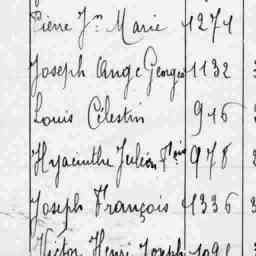 Pierre Jn Marie 1274
Joseph Ange Georges 1132
Louis Célestin 916
Hyacinthe Julien Fçois 978
Joseph François 1336
Victor Henri Joseph